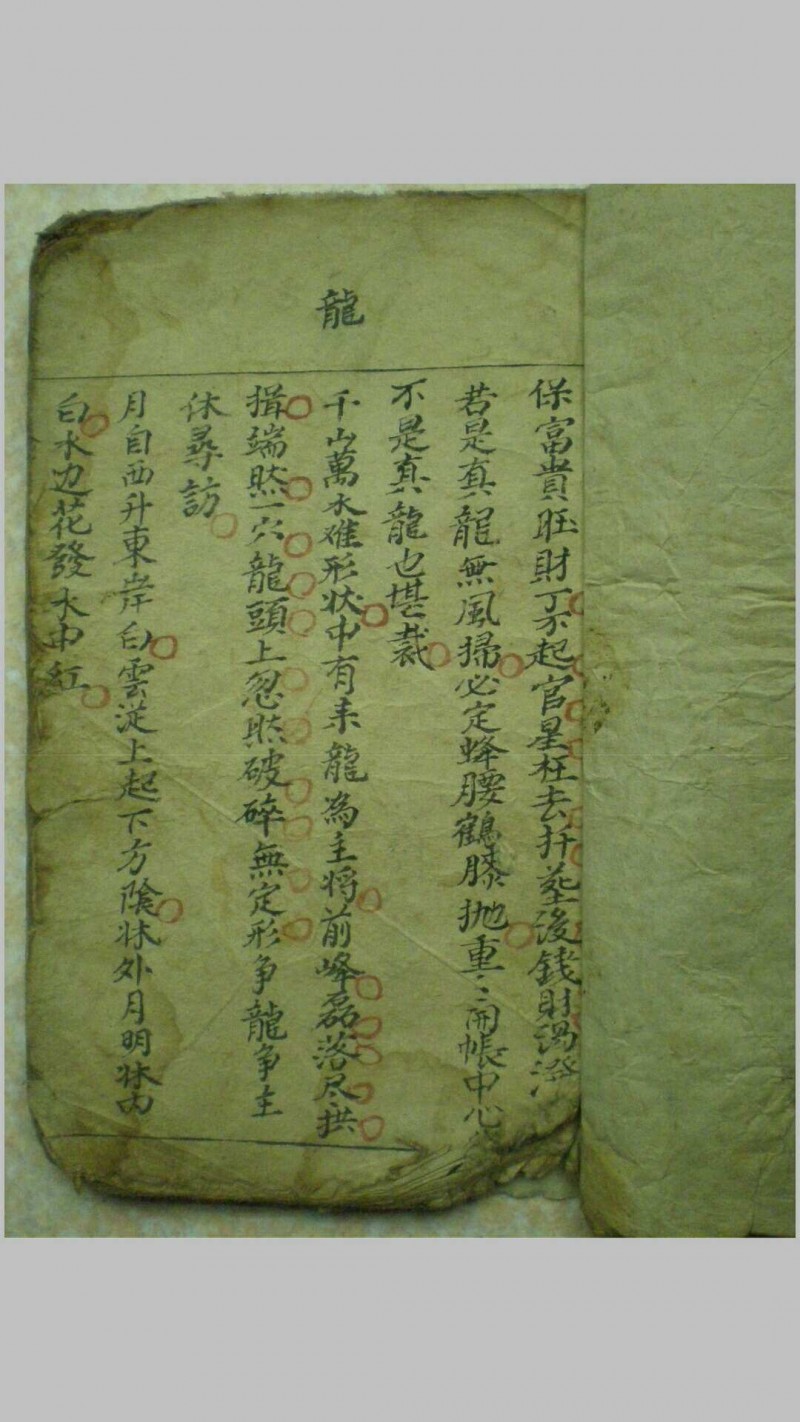 龍
保富貴旺財丁不起官星枉去扦塟後錢財湯潑
若是真龍無風掃必定蜂腰鶴膝抛重〻開帳中心
不是真龍也堪裁
千山萬水难形状中有来龍為主将前峰磊落尽拱
揖端然一穴龍頭上忽然破碎無定形争龍争主
休尋訪
月自西升東岸白雲从上起下方陰牀外月明牀内
白水边花發水中紅